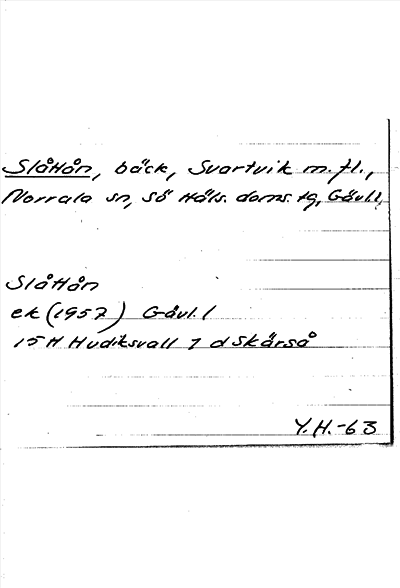 Slåttån, bäck, Svartvik m.fl.,
Norrala sn, Sö Häls. doms. tg, Gävl.l,
Slåttån
ek (1957) Gävl. l
15 H Hudiksvall 7 d Skärså
Y.H.-63